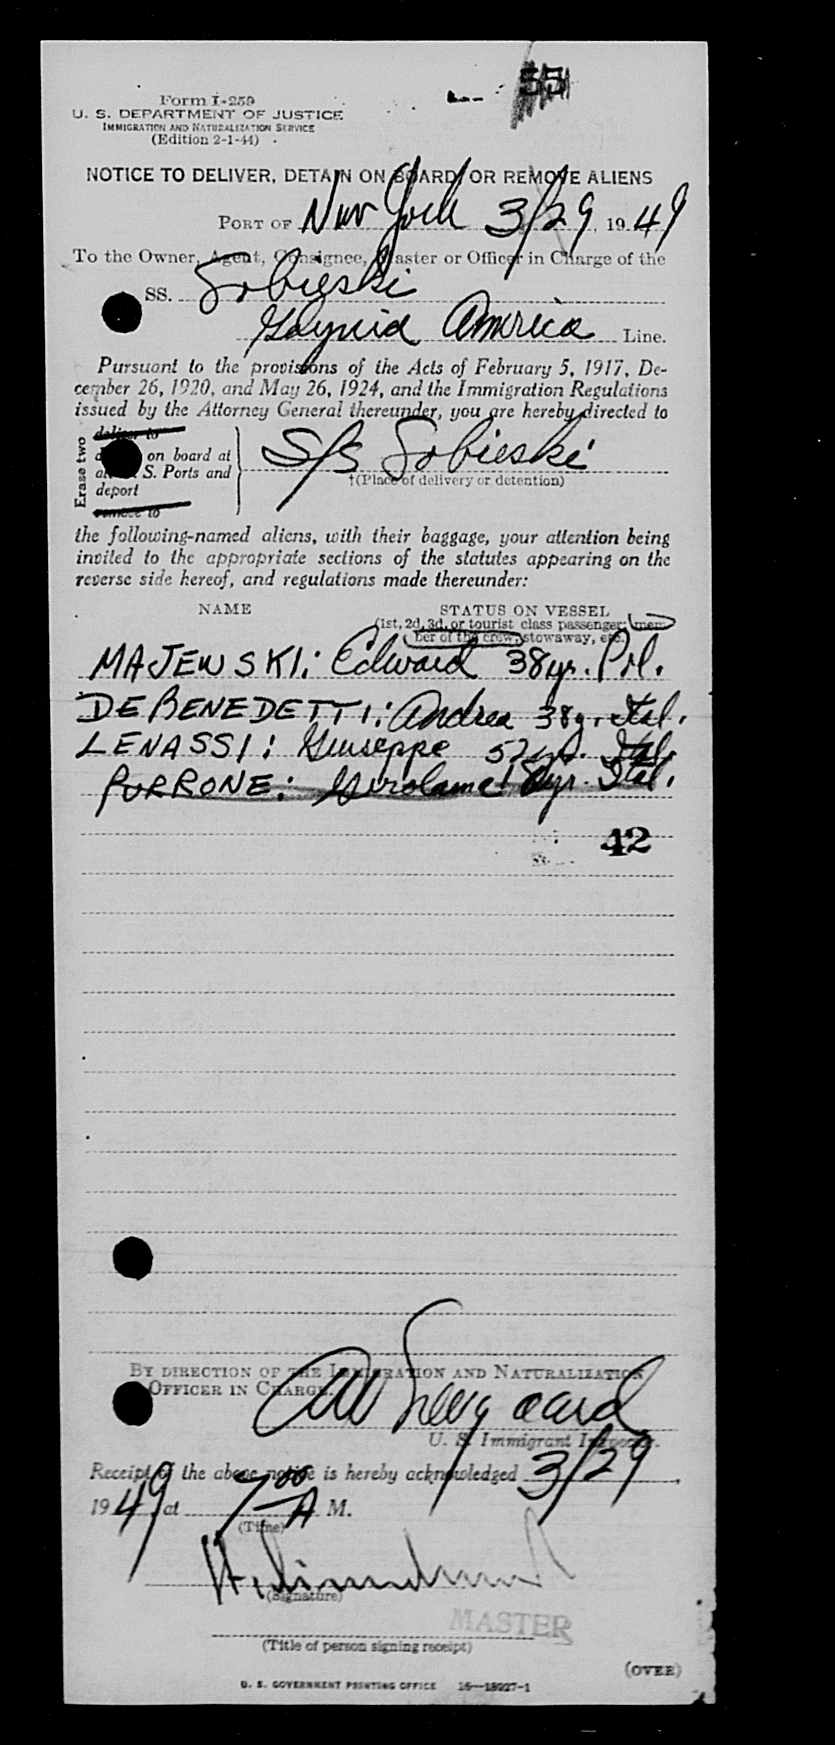 55
Form I-259
U. S. DEPARTMENT OF JUSTICE
IMMIGRATION AND NATURALIZATION SERVICE
(Edition 2-1-44)
NOTICE TO DELIVER, DETAIN ON BOARD, OR REMOVE ALIENS
PORT OF New York 3/29, 1949
To the Owner, Agent, Consignee, Master or Officer in Charge of the
SS. Sobieski
Gdynia America Line.
Pursuant to the provisions of the Acts of February 5, 1917, De-
cember 26, 1920, and May 26, 1924, and the Immigration Regulations
issued by the Attorney General thereunder, you are hereby directed to
Erase two
deliver to
on board at
S. Ports and
deport
remove to
S/S Sobieski
†(Place of delivery or detention)
the following-named aliens, with their baggage, your attention being
invited to the appropriate sections of the statutes appearing on the
reverse side hereof, and regulations made thereunder:
NAME STATUS ON VESSEL
(1st, 2d, 3d, or tourist class passenger; mem-
ber of the crew, stowaway, etc.
MAJEWSKI: Edward 38yr. Pol.
DEBENEDETTI: Andrea 38y. Ital.
LENASSI: Giuseppe Ital.
PURRONE: Girolamo yr. Ital.
42
BY DIRECTION OF THE IMMIGRATION AND NATURALIZATION
OFFICER IN CHARGE.
U. S. Immigrant Inspector.
Receipt of the above notice is hereby acknowledged 3/29,
1949, at 7 00 A M.
(Time)
(Signature)
MASTER
(Title of person signing receipt)
(OVER)
U. S. GOVERNMENT PRINTING OFFICE 16—18927-1